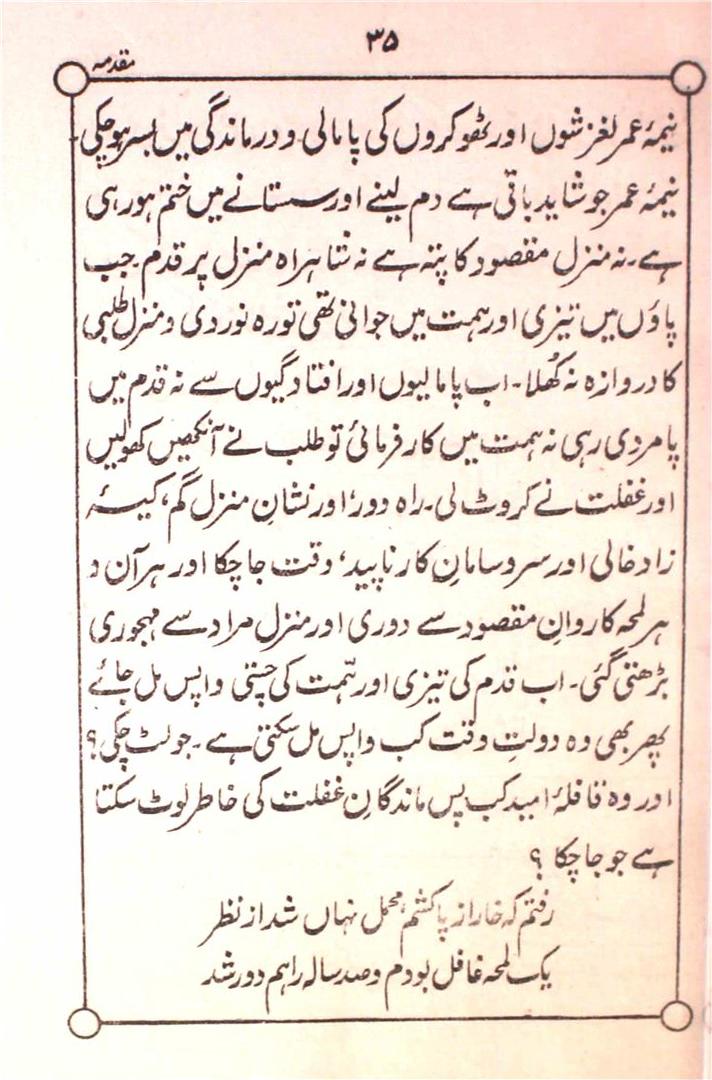 ۳۵
مقدمہ
نیمۂ عمر لغزشوں اور ٹھوکروں کی پامالی و درماندگی میں بسر ہو چکی۔
نیمۂ عمر جو شاید باقی ہے دم لینے اور سستانے میں ختم ہو رہی
ہے۔ نہ منزل مقصود کا پتہ ہے نہ شاہراہ منزل پر قدم۔ جب
پاؤں میں تیزی اور ہمت میں جوانی تھی تو رہ نوردی و منزل طلبی
کا دروازہ نہ کُھلا۔ اب پامالیوں اور افتادگیوں سے نہ قدم میں
پامردی رہی نہ ہمت میں کارفرمائی تو طلب نے آنکھیں کھولیں
اور غفلت نے کروٹ لی۔ راہ دور، اور نشانِ منزل گم، کیسۂ
زاد خالی اور سر و سامانِ کار ناپید، وقت جا چکا اور ہر آن و
ہر لمحہ کاروانِ مقصود سے دوری اور منزل مراد سے مہجوری
بڑھتی گئی۔ اب قدم کی تیزی اور ہمّت کی چستی واپس مل جائے
پھر بھی وہ دولتِ وقت کب واپس مل سکتی ہے۔ جو لٹ چکی؟
اور وہ قافلۂ امید کب پس ماندگانِ غفلت کی خاطر لوٹ سکتا
ہے جو جا چکا ؟
رفتم کہ خار از پا کشم، محمل نہاں شد از نظر
یک لمحہ غافل بودم و صد سالہ راہم دور شد